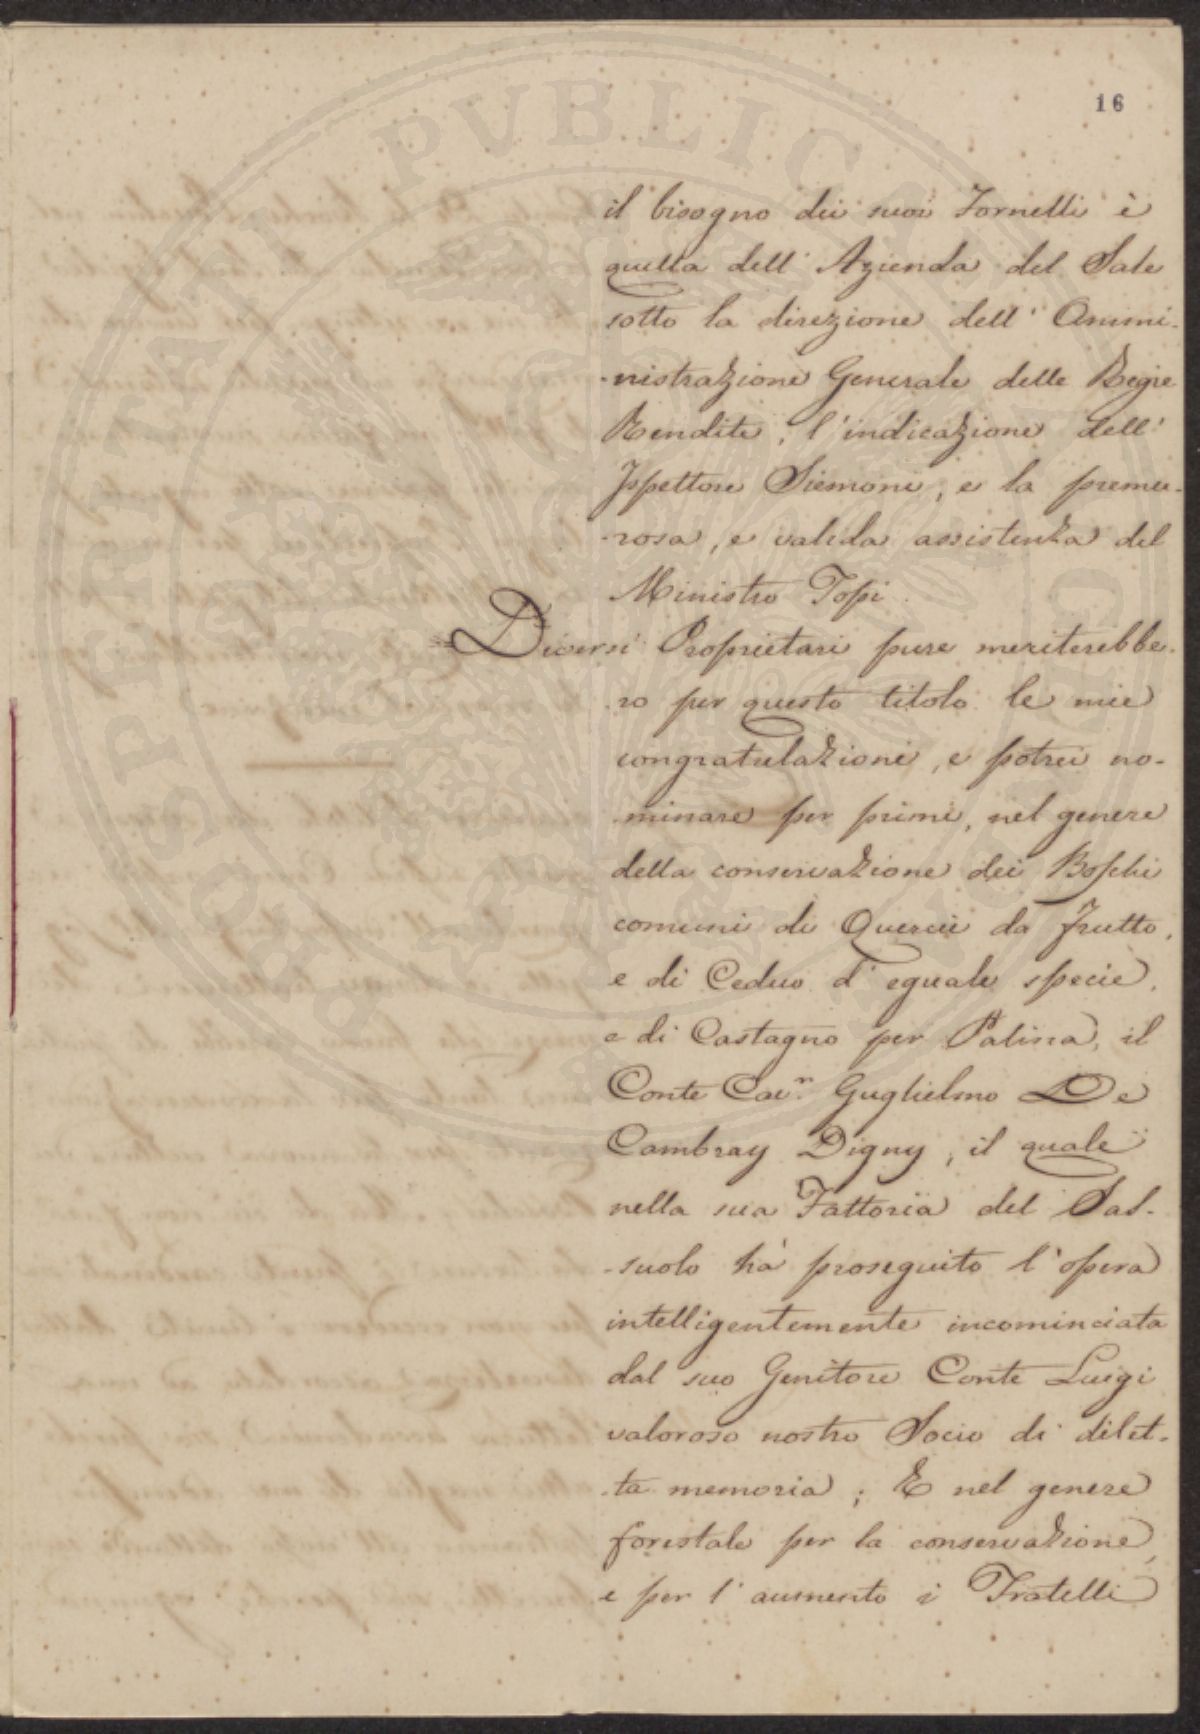 16
il bisogno dei suoi Fornelli è
quella dell' Azienda del Sale
sotto la direzione dell' Ammi-
-nistrazione Generale delle Regie
Rendite, l'indicazione dell'
Ispettore Siemoni, e la premu-
-rosa, e valida assistenza del
Ministro Topi.
Diversi Proprietari pure meriterebbe-
-ro per questo titolo le mie
congratulazioni, e potrei no-
-minare per primi, nel genere
della conservazione dei Boschi
comuni di Querce da frutto,
e di Ceduo d'eguale specie,
e di Castagno per Palina, il
Conte Cav.r Guglielmo De
Cambray Digny, il quale
nella sua Fattoria del Sas-
-suolo hà proseguito l'opera
intelligentemente incominciata
dal suo Genitore Conte Luigi
valoroso nostro Socio di dilet-
-ta memoria; E nel genere
forestale per la conservazione,
e per l'aumento i Fratelli
PROSPERITATI PVBLICAE AVGENDAE